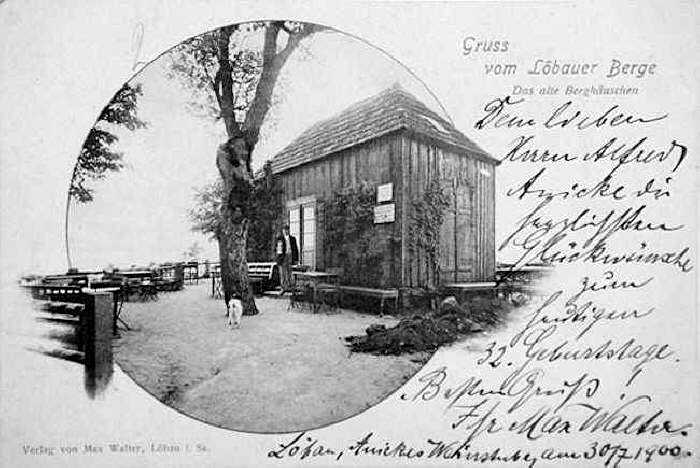 Gruss
vom Löbauer Berge
Das alte Berghäuschen
Dem lieben
Herrn Alfred
Anicke die
herzlichsten
Glückwünsche
zum
heutigen
32. Geburtstage.
Besten Gruß!
Ihr Max Walter.
Löbau, Anickes Weinstube, am 30/7 1900.
Verlag von Max Walter, Löbau i. Sa.